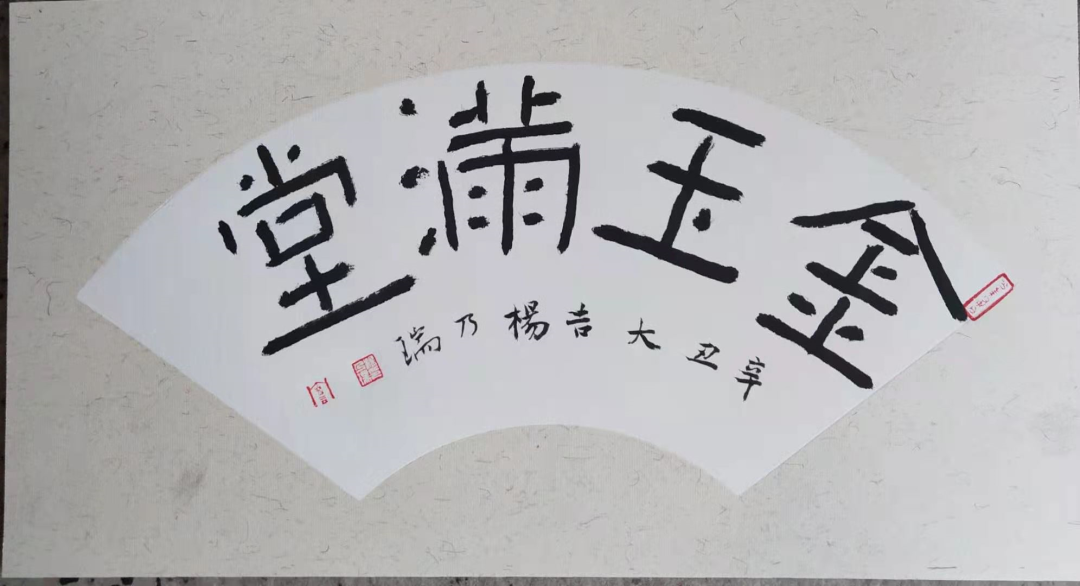 金玉滿堂
辛丑大吉楊乃瑞